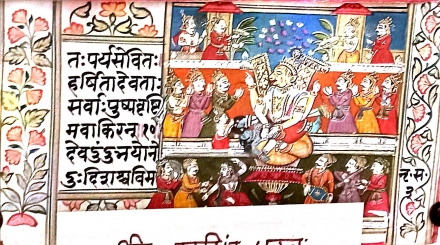 तःपर्यसेवितः
हर्षितादेवताः
सर्वाःपुष्पवृष्टि
मवाकिरन् १०
देवदुंदुभयोने
दुःदिवाश्चविम
च॰स॰
३
श्री